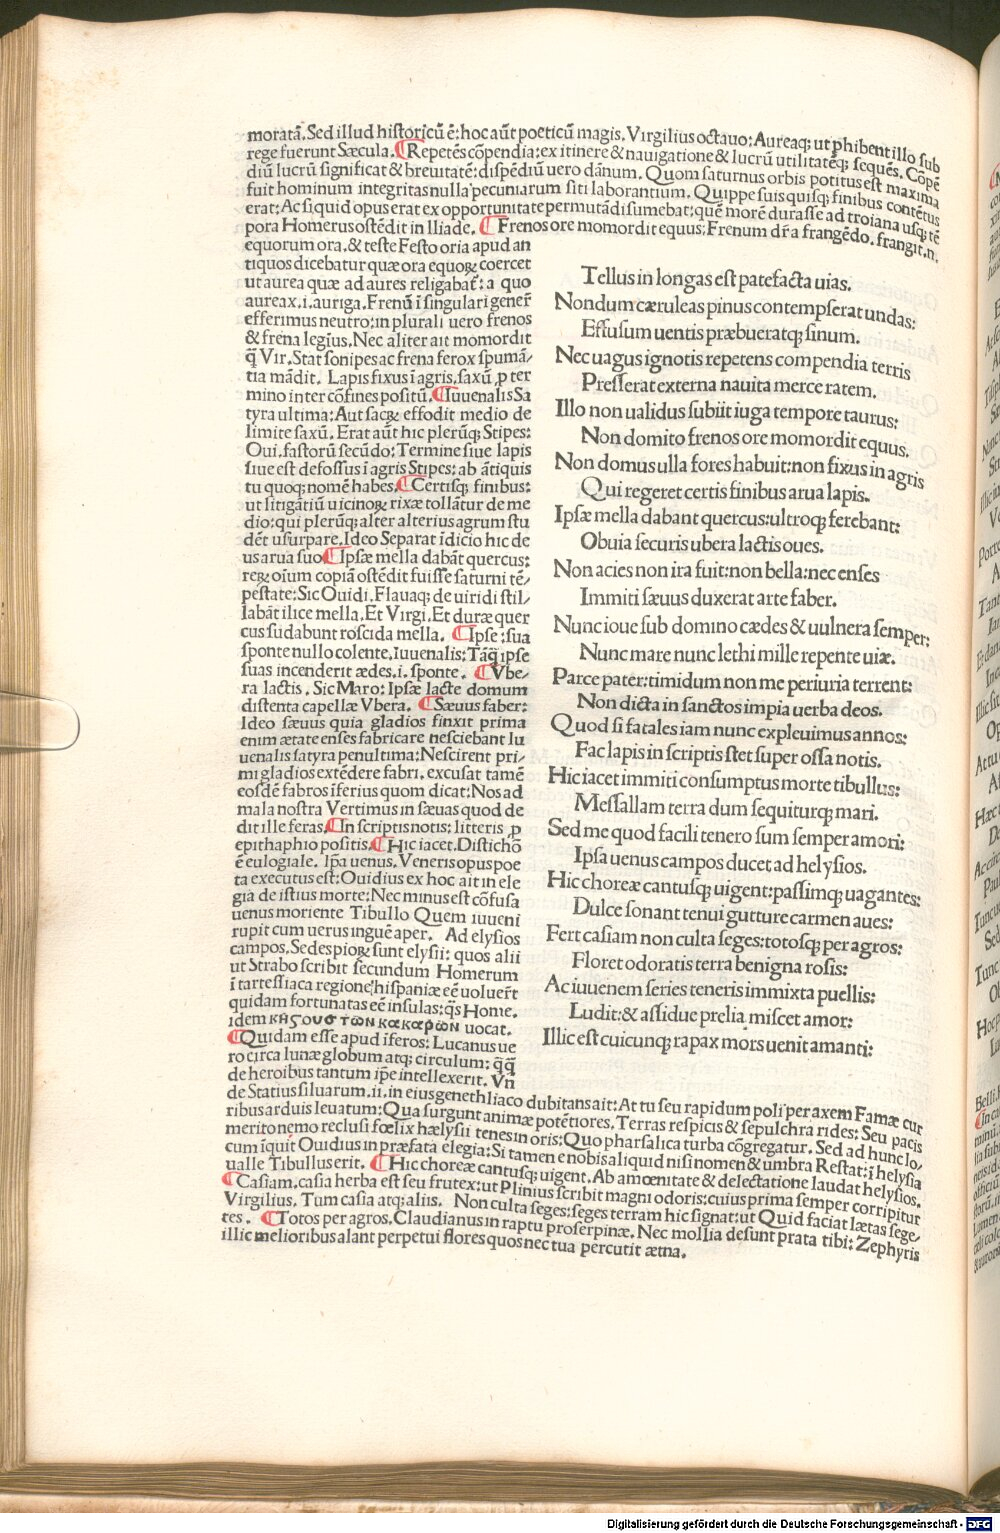 moratā. Sed illud historicū ē: hoc aūt poeticū magis. Virgilius octauo: Aureaq; ut phibent illo sub
rege fuerunt Sæcula. ⸿Repetēs cōpendia: ex itinere & nauigatione & lucrū utilitatēq; sequēs. Cōpē
diū lucrū significat & breuitatē: dispēdiū uero dānum. Quom saturnus orbis potitus est maxima
fuit hominum integritas nulla pecuniarum siti laborantium. Quippe suis quisq; finibus contētus
erat: Ac si quid opus erat ex opportunitate permutādi sumebat: quē morē durasse ad troiana usq; tē
pora Homerus ostēdit in Iliade. ⸿Frenos ore momordit equus: Frenum dr̄a frangēdo. frangit. n.
equorum ora. & teste Festo oria apud an
tiquos dicebatur quæ ora equoꝝ coercet
ut aurea quæ ad aures religabat̄: a quo
aureax. i. auriga. Frenū ī singulari gener̄
efferimus neutro: in plurali uero frenos
& frena legīus. Nec aliter ait momordit
q̄ Vir. Stat sonipes ac frena ferox spumā/
tia mādit. Lapis fixus ī agris. saxū p ter
mino inter cōfines positū. ⸿Iuuenalis Sa
tyra ultima: Aut sacꝝ effodit medio de
limite saxū. Erat aūt hic plerūq; Stipes:
Oui. fastorū secūdo: Termine siue lapis
siue est defossus ī agris Stipes: ab ātiquis
tu quoq; nomē habes. ⸿Certisq; finibus:
ut litigātiū uicinoꝝ rixæ tollātur de me
dio: qui plerūq; alter alterius agrum stu
dēt usurpare. Ideo Separat īdicio hic de
us arua suo ⸿Ipsæ mella dabāt quercus:
reꝝ oīum copiā ostēdit fuisse saturni tē/
pestate: Sic Ouidi. Flauaq; de uiridi stil/
labāt ilice mella. Et Virgi. Et duræ quer
cus sudabunt roscida mella. ⸿Ipse: sua
sponte nullo colente. Iuuenalis: Tāq̄ ipse
suas incenderit ædes. i. sponte. ⸿Vbe/
ra lactis. Sic Maro: Ipsæ lacte domum
distenta capellæ Vbera. ⸿Sæuus faber:
Ideo sæuus quia gladios finxit prima
enim ætate enses fabricare nesciebant Iu
uenalis satyra penultima: Nescirent pri/
mi gladios extēdere fabri. excusat tamē
eosdē fabros īferius quom dicat: Nos ad
mala nostra Vertimus in sæuas quod de
dit ille feras. ⸿In scriptis notis: litteris p
epithaphio positis. ⸿Hic iacet. Distichō
ē eulogiale. Ip̄a uenus. Veneris opus poe
ta executus est: Ouidius ex hoc ait in ele
gia de istius morte: Nec minus est cōfusa
uenus moriente Tibullo Quem iuueni
rupit cum uerus inguē aper. Ad elysios
campos. Sedes pioꝝ sunt elysii: quos alii
ut Strabo scribit secundum Homerum
ī tartessiaca regione, hispaniæ eē uoluer̄t
quidam fortunatas eē insulas: q̄s Home.
idem uocat.
⸿Quidam esse apud īferos: Lucanus ue
ro circa lunæ globum atq; circulum: q̄q̄
de heroibus tantum ip̄e intellexerit. Vn̄
de Statius siluarum. ii. in eius genethliaco dubitans ait: At tu seu rapidum poli per axem Famæ cur
ribus arduis leuatum: Qua surgunt animæ potētiores. Terras respicis & sepulchra rides: Seu pacis
merito nemo reclusi fœlix hælysii tenes in oris: Quo pharsalica turba cōgregatur. Sed ad hunc lo/
cum īquit Ouidius in præfata elegia: Si tamen e nobis aliquid nisi nomen & umbra Restat: ī helysia
ualle Tibullus erit. ⸿Hic choreæ cantusq; uigent. Ab amœnitate & delectatione laudat helysios.
⸿Casiam. casia herba est seu frutex: ut Plinius scribit magni odoris: cuius prima semper corripitur
Virgilius. Tum casia atq; aliis. Non culta seges: seges terram hic signat: ut Quid faciat lætas sege/
tes. ⸿Totos per agros. Claudianus in raptu proserpinæ. Nec mollia desunt prata tibi: Zephyris
illic melioribus alant perpetui flores quos nec tua percutit ætna.
Tellus in longas est patefacta uias.
Nondum cæruleas pinus contempserat undas:
Effusum uentis præbueratq; sinum.
Nec uagus ignotis repetens compendia terris
Presserat externa nauita merce ratem.
Illo non ualidus subiit iuga tempore taurus:
Non domito frenos ore momordit equus.
Non domus ulla fores habuit: non fixus in agris
Qui regeret certis finibus arua lapis.
Ipsæ mella dabant quercus: ultroq; ferebant:
Obuia securis ubera lactis oues.
Non acies non ira fuit: non bella: nec enses
Immiti sæuus duxerat arte faber.
Nunc ioue sub domino cædes & uulnera semper:
Nunc mare nunc lethi mille repente uiæ.
Parce pater: timidum non me periuria terrent:
Non dicta in sanctos impia uerba deos.
Quod si fatales iam nunc expleuimus annos:
Fac lapis in scriptis stet super ossa notis.
Hic iacet immiti consumptus morte tibullus:
Messallam terra dum sequiturq; mari.
Sed me quod facili tenero sum semper amori:
Ipsa uenus campos ducet ad helysios.
Hic choreæ cantusq; uigent: passimq; uagantes:
Dulce sonant tenui gutture carmen aues:
Fert casiam non culta seges: totosq; per agros:
Floret odoratis terra benigna rosis:
Ac iuuenem series teneris immixta puellis:
Ludit: & assidue prelia miscet amor:
Illic est cuicunq; rapax mors uenit amanti:
Digitalisierung gefördert durch die Deutsche Forschungsgemeinschaft - DFG